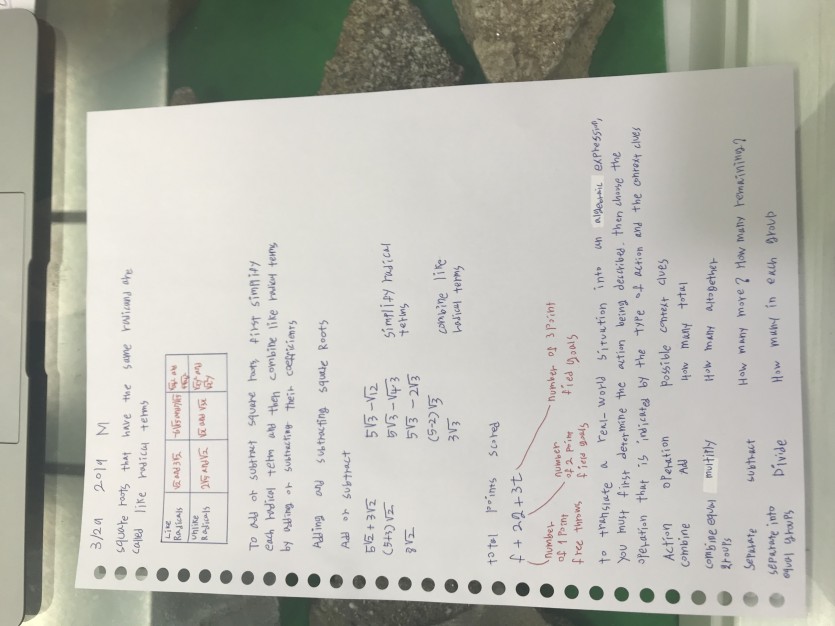 3/29 2019 M
square roots that have the same radicand are
called like radical terms
Like Radicals √2 and 3√2
Unlike Radicals 2√5 and √2
To add or subtract square roots first simplify
each radical term and then combine like radical terms
by adding or subtracting their coefficients
Adding and subtracting square Roots
Add or subtract
5√2 + 3√2
(5+3)√2
8√2
5√3 - √12
5√3 - √4·3
5√3 - 2√3
(5-2)√3
3√3
simplify radical
terms
combine like
radical terms
total points scored
f + 2g + 3t
number
of 1 point
free throws
number
of 2 point
field goals
number of 3 point
fied goals
to translate a real-world situation into an algebraic expression,
you must first determine the action being described. then choose the
operation that is indicated by the type of action and the context clues
Action operation possible context clues
combine Add How many total
combine equal groups multiply How many altogether
Separate subtract How many more? How many remaining?
separate into equal groups Divide How many in each group